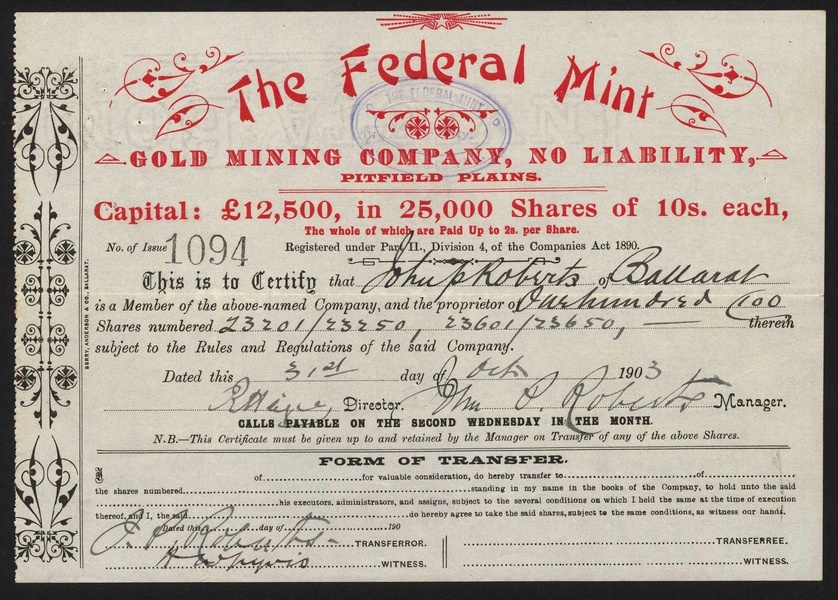 The Federal Mint
THE FEDERAL MINT
GOLD MINING COMPANY, NO LIABILITY,
PITFIELD PLAINS.
Capital: £12,500, in 25,000 Shares of 10s. each,
The whole of which are Paid Up to 2s. per Share.
No. of Issue 1094 Registered under Part II., Division 4, of the Companies Act 1890.
This is to Certify that John P Roberts of Ballarat
is a Member of the above-named Company, and the proprietor of One hundred 100
Shares numbered 23201/23250, 23601/23650, therein
subject to the Rules and Regulations of the said Company.
Dated this 31st day of Oct 1903
Director. Wm P. Roberts Manager.
CALLS PAYABLE ON THE SECOND WEDNESDAY IN THE MONTH.
N.B.—This Certificate must be given up to and retained by the Manager on Transfer of any of the above Shares.
BERRY, ANDERSON & CO., BALLARAT.
FORM OF TRANSFER.
of for valuable consideration, do hereby transfer to of
the shares numbered standing in my name in the books of the Company, to hold unto the said
his executors, administrators, and assigns, subject to the several conditions on which I held the same at the time of execution
thereof, and I, the said do hereby agree to take the said shares, subject to the same conditions, as witness our hands.
Dated this day of 190
J. P. Roberts TRANSFERROR. TRANSFEREE.
WITNESS. WITNESS.